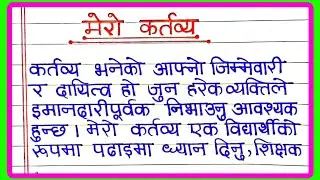 मेरो कर्तव्य
कर्तव्य भनेको आफ्नो जिम्मेवारी
र दायित्व हो जुन हरेक व्यक्तिले
इमानदारीपूर्वक निभाउनु आवश्यक
हुन्छ । मेरो कर्तव्य एक विद्यार्थीको
रूपमा पढाइमा ध्यान दिनु, शिक्षक